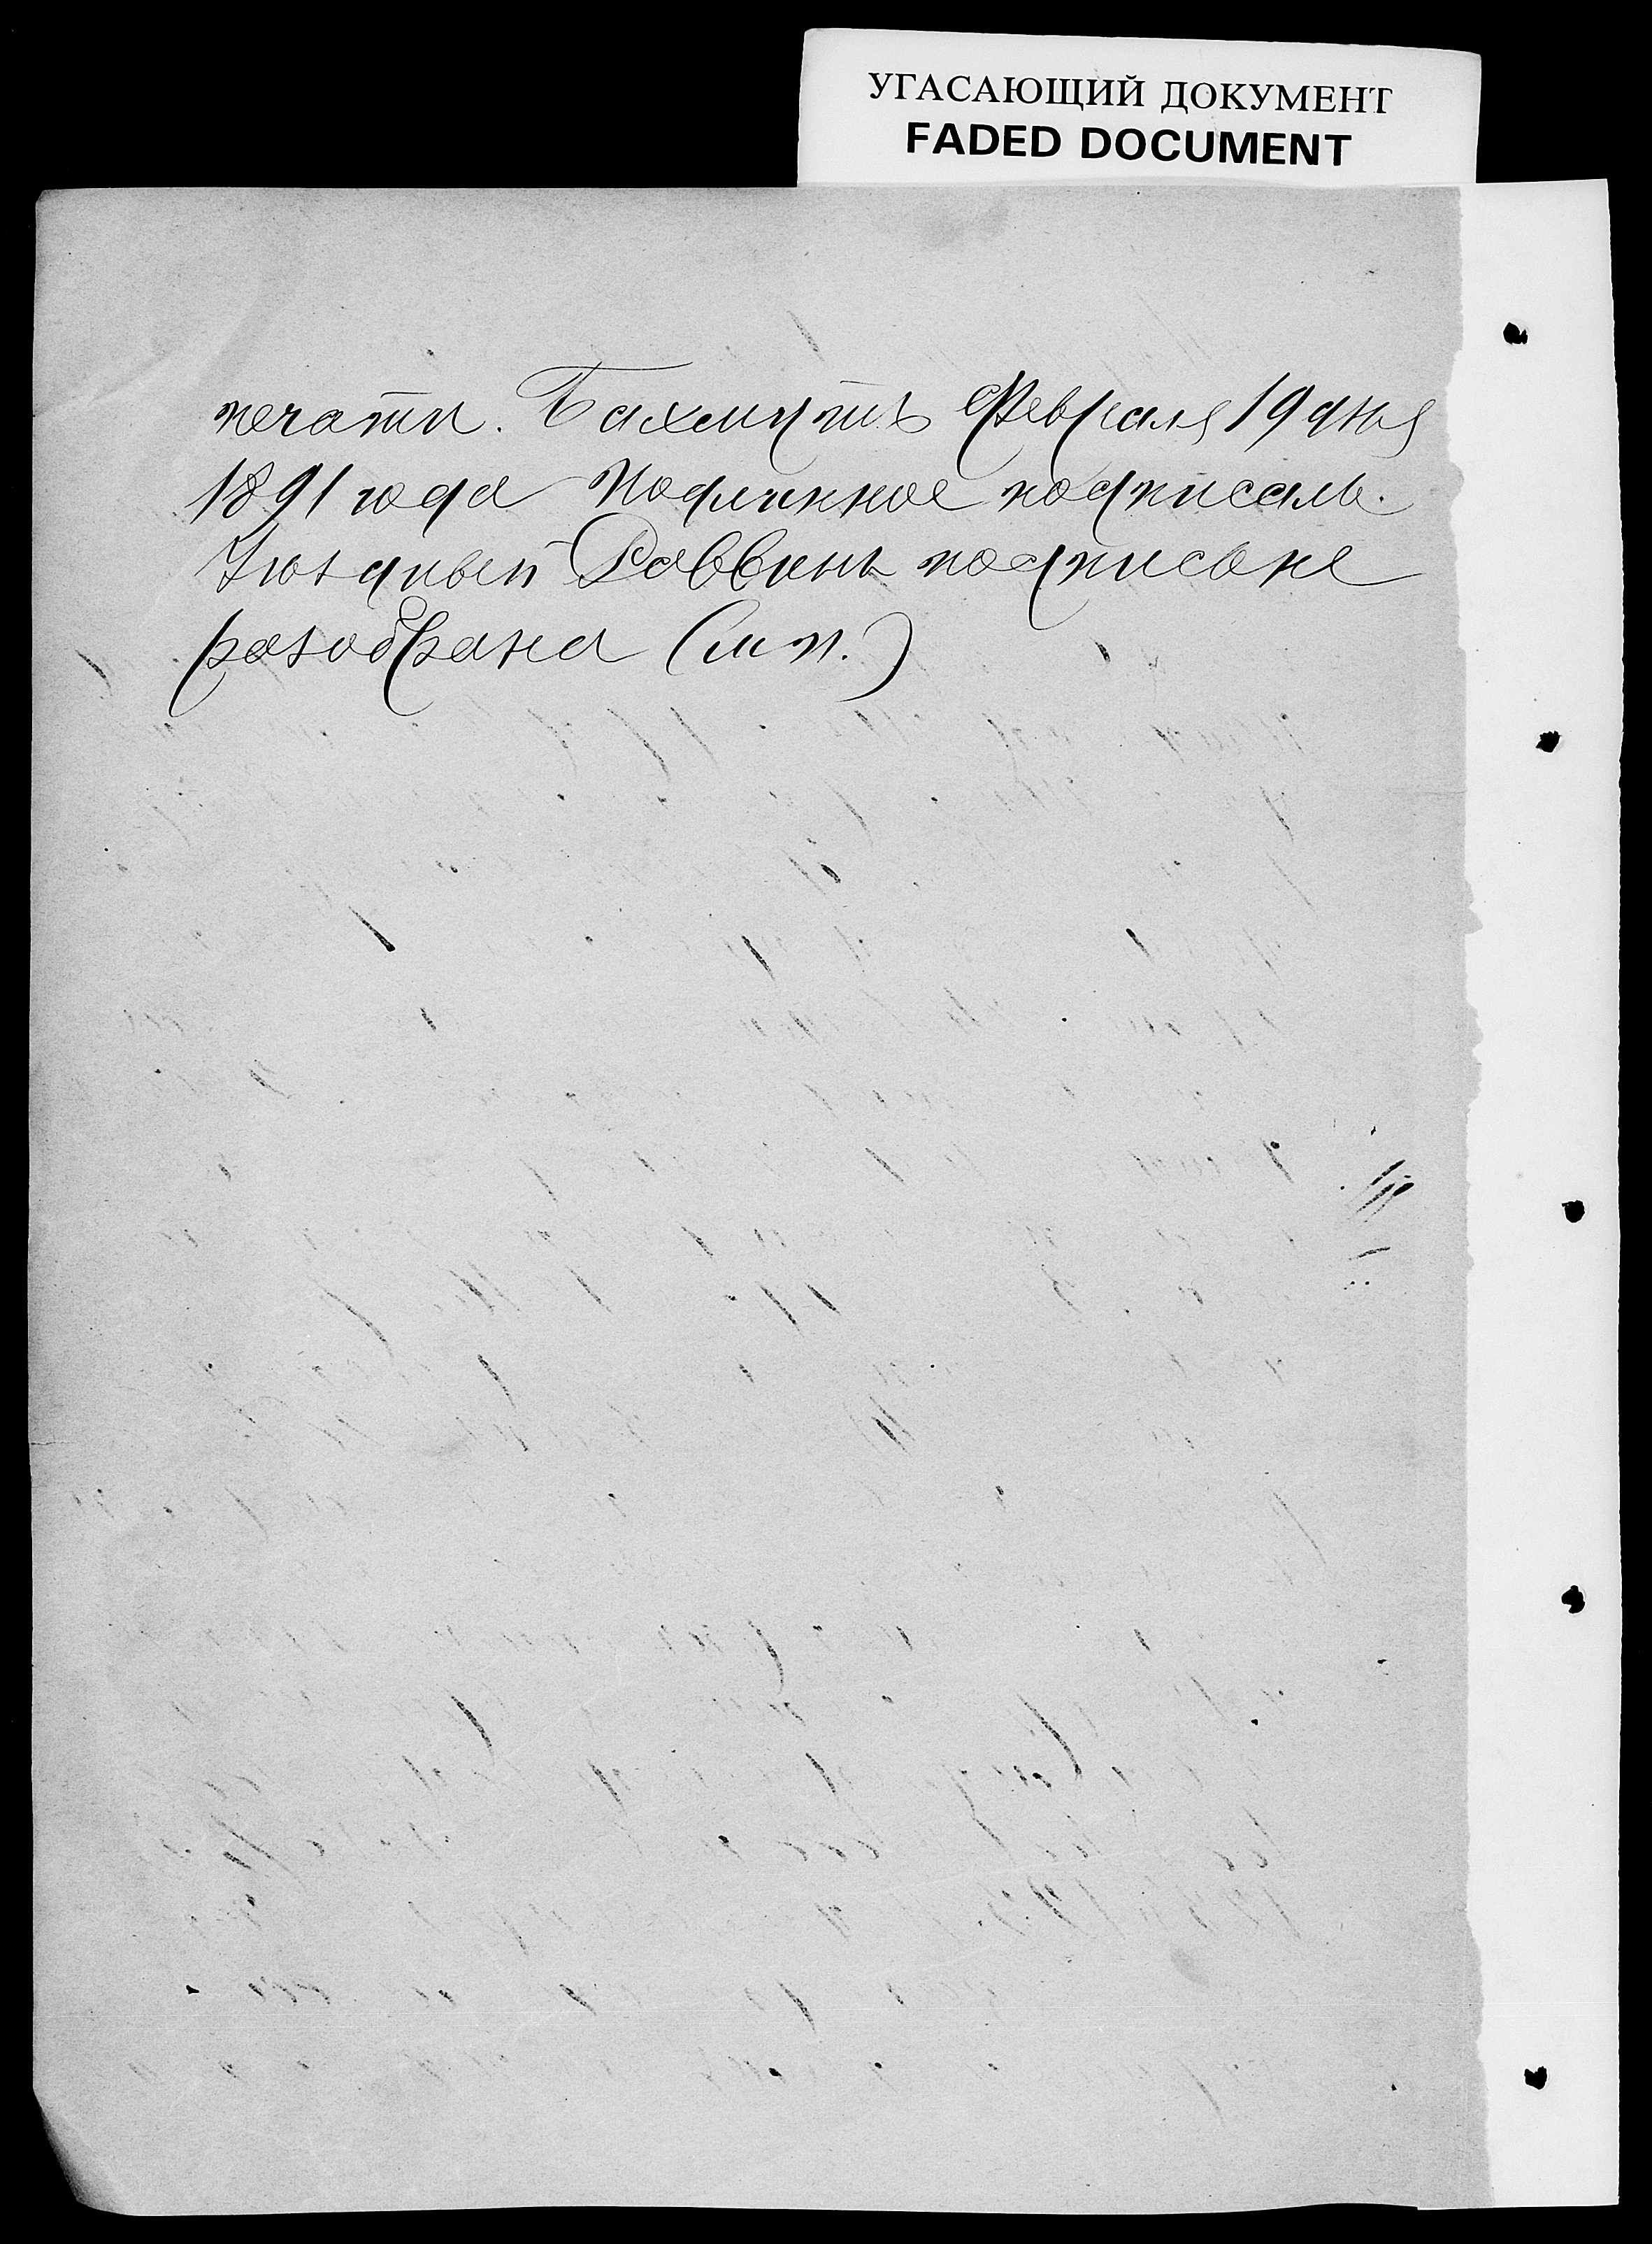 УГАСАЮЩИЙ ДОКУМЕНТ
FADED DOCUMENT
печати. Бахмутъ Февраля 19 дня
1891 года Подлинное подписалъ.
Уѣздный Раввинъ подпись не
разобрана (м п.)